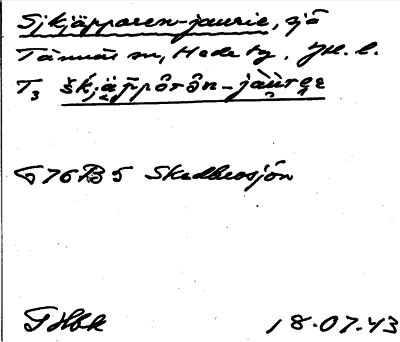 Sjkjäpparen-jaurie, sjö
Tännäs sn, Hede tg. Jtl. l.
T3 škjäppōrōn-jàùrɛe
G 76 B 5 Skedbrosjön
18.07.43